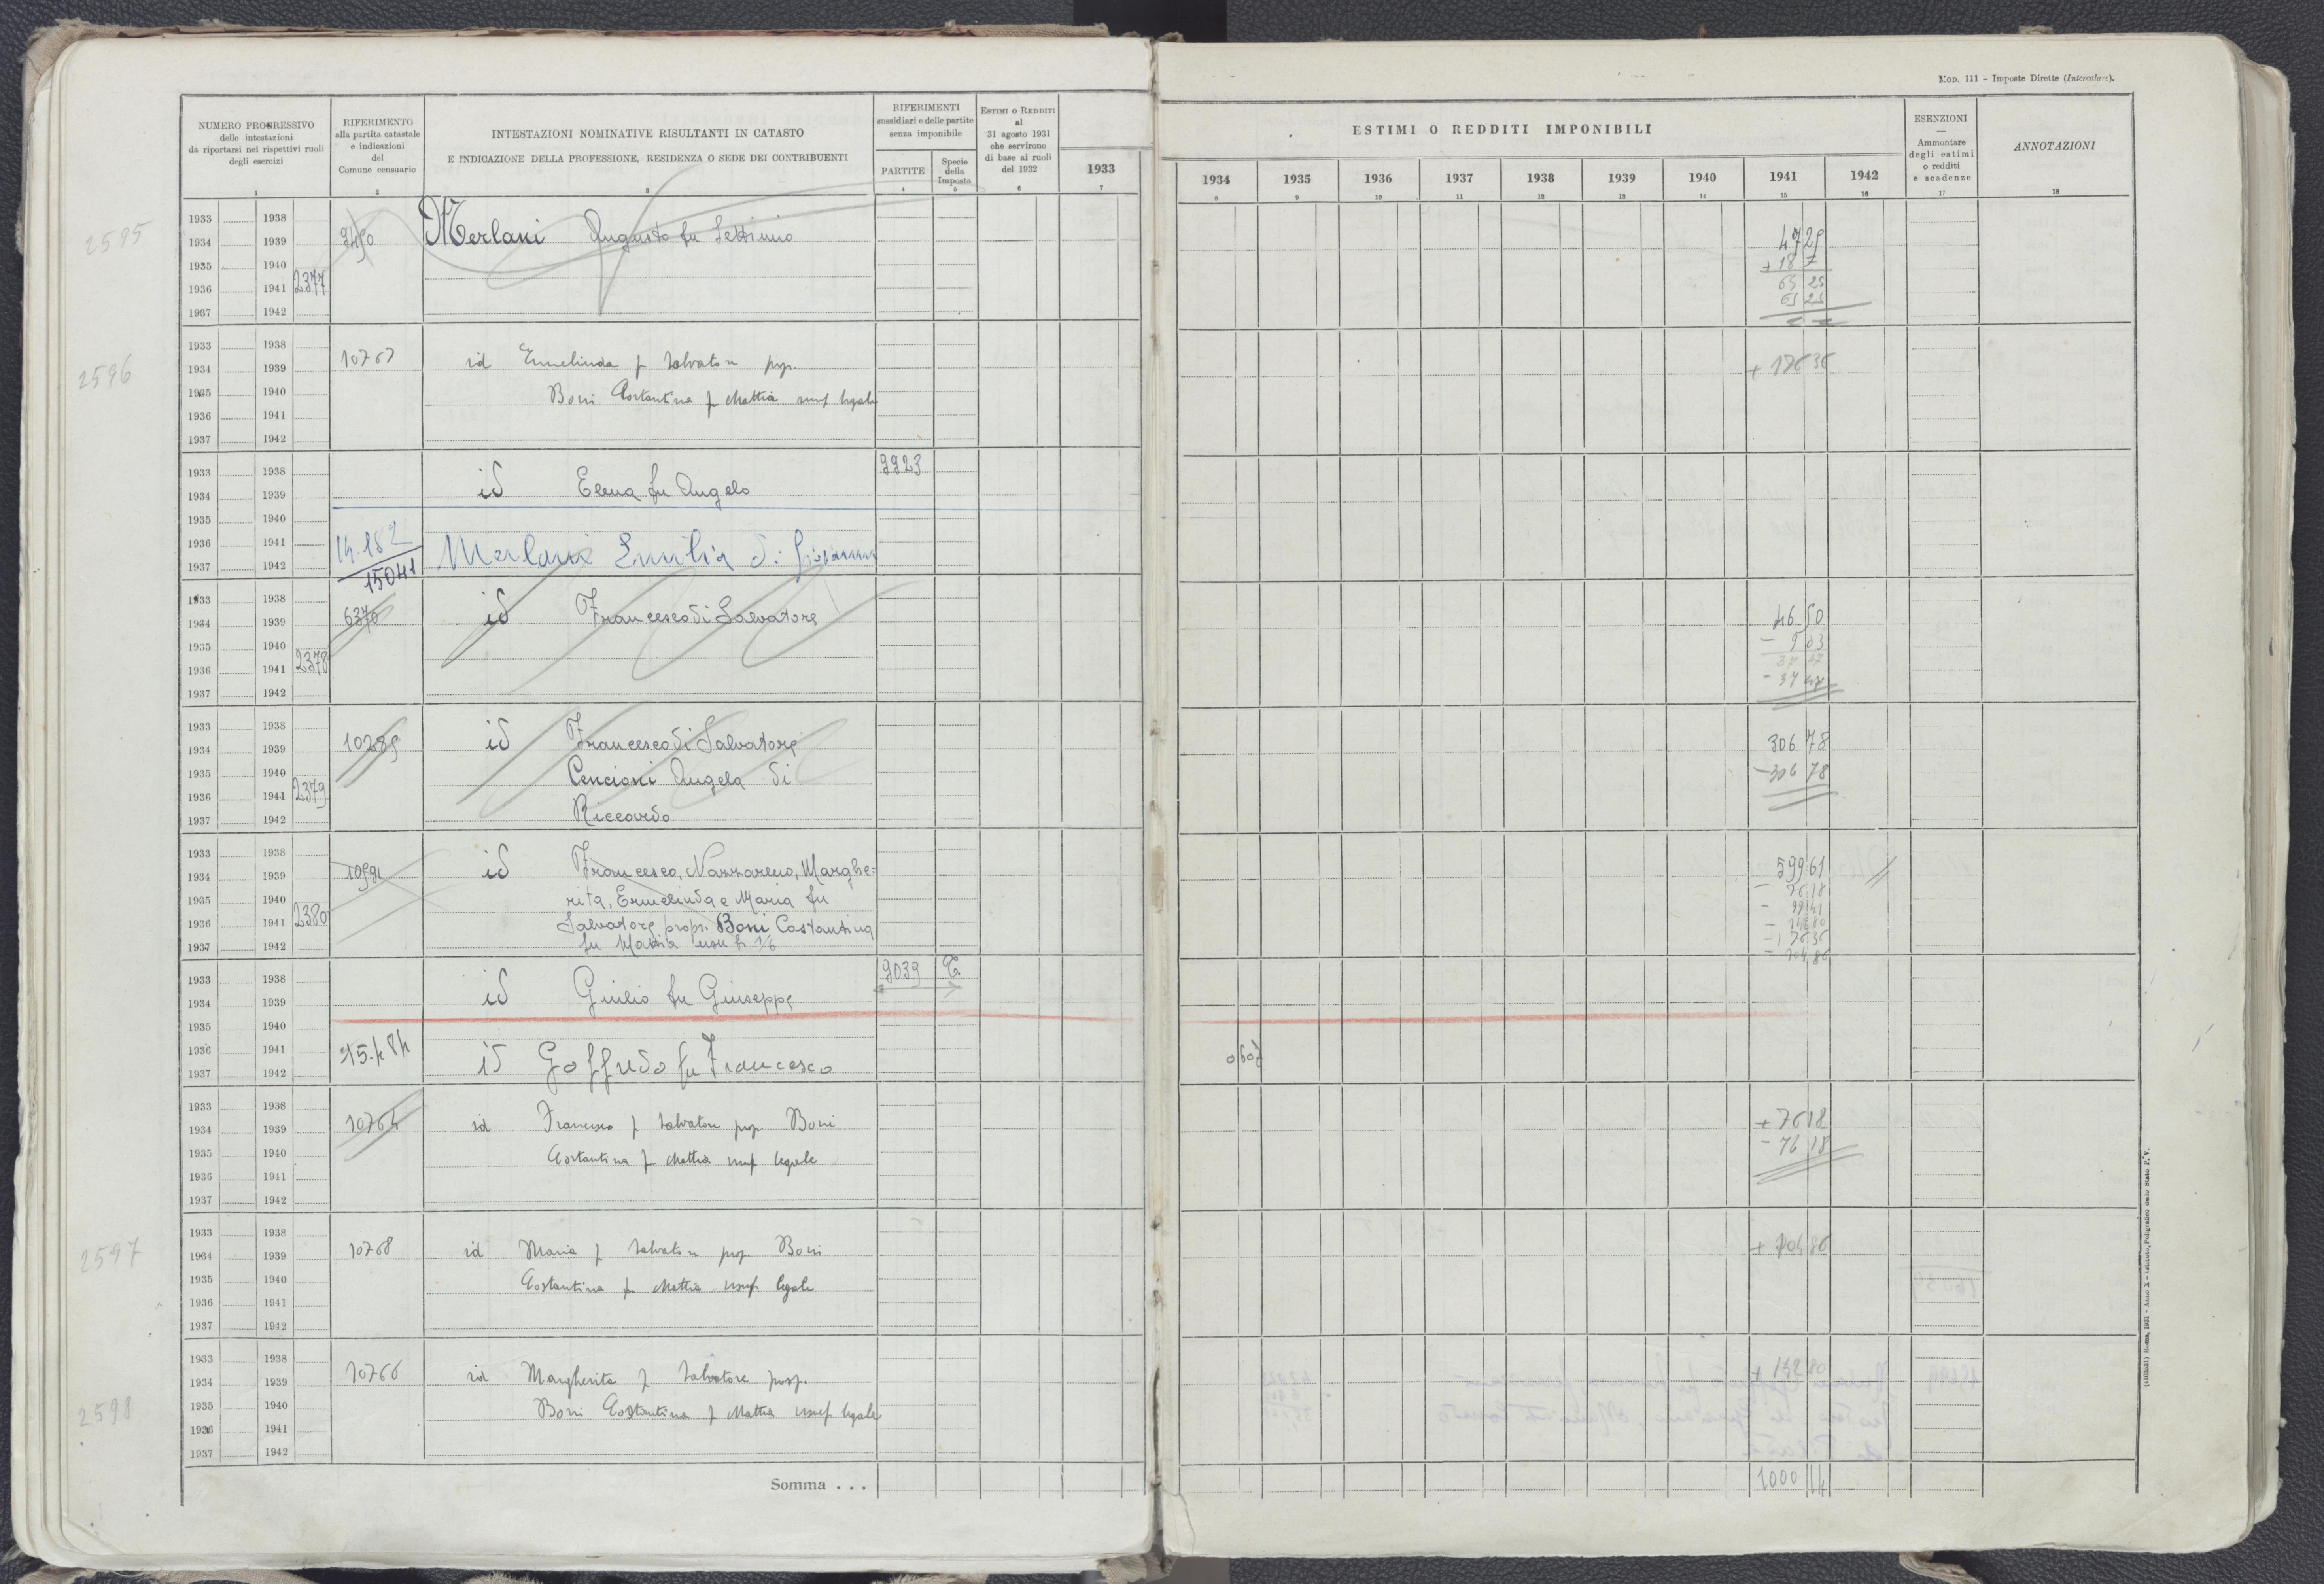 Mod. 111 - Imposte Dirette (Intercalare).
NUMERO PROGRESSIVO
delle intestazioni
da riportarsi nei rispettivi ruoli
degli esercizi
1
RIFERIMENTO
alla partita catastale
e indicazioni
del
Comune censuario
2
INTESTAZIONI NOMINATIVE RISULTANTI IN CATASTO
E INDICAZIONE DELLA PROFESSIONE, RESIDENZA O SEDE DEI CONTRIBUENTI
3
RIFERIMENTI
sussidiari e delle partite
senza imponibile
PARTITE
4
Specie
della
Imposta
5
ESTIMI O REDDITI
al
31 agosto 1931
che servirono
di base ai ruoli
del 1932
6
1933
7
ESTIMI O REDDITI IMPONIBILI
1934 1935 1936 1937 1938 1939 1940 1941 1942
8 9 10 11 12 13 14 15 16
ESENZIONI
Ammontare
degli estimi
o redditi
e scadenze
17
ANNOTAZIONI
18
1933 1938
2595 1934 1939 9450 Merlani Augusto fu Settimio 47 25
1935 1940 + 18 7
1936 1941 2377 65 25
1937 1942 65 25
1933 1938
2596 1934 1939 10767 id Ermelinda f Salvatore prop. + 176 35
1935 1940 Boni Costantina f Mattia usuf legale
1936 1941
1937 1942
1933 1938 9923
1934 1939 id Elena fu Angelo
1935 1940
1936 1941 14.182 Merlani Emilia di Giovanni
1937 1942 15041
1933 1938
1934 1939 6370 id Francesco di Salvatore 46 50
1935 1940 - 9 03
1936 1941 2378 37 47
1937 1942 - 37 47
1933 1938
1934 1939 10285 id Francesco di Salvatore 306 78
1935 1940 Cencioni Angela di - 306 78
1936 1941 2379
1937 1942 Riccardo
1933 1938
1934 1939 10591 id Francesco, Nazzareno, Marghe= 599 61
1935 1940 rita, Ermelinda e Maria fu - 76 18
1936 1941 2380 Salvatore propr. Boni Costantina - 99 41
- 142 80
1937 1942 fu Mattia usu fr 1/6 - 176 35
- 104 86
1933 1938 9039 T.
1934 1939 id Giulio fu Giuseppe
1935 1940
1936 1941 15.484
1937 1942 id Goffredo fu Francesco 0 607
1933 1938
1934 1939 10764 id Francesco f Salvatore prop. Boni + 76 18
1935 1940 Costantina f Mattia usuf legale - 76 18
1936 1941
1937 1942
1933 1938
2597 1934 1939 10768 id Maria f Salvatore prop. Boni + 104 86
1935 1940 Costantina f Mattia usuf legale
1936 1941
1937 1942
1933 1938
1934 1939 10766 id Margherita f Salvatore prop. + 142 80
2598 1935 1940 Boni Costantina f Mattia usuf legale
1936 1941
1937 1942
Somma . . . 1000 14